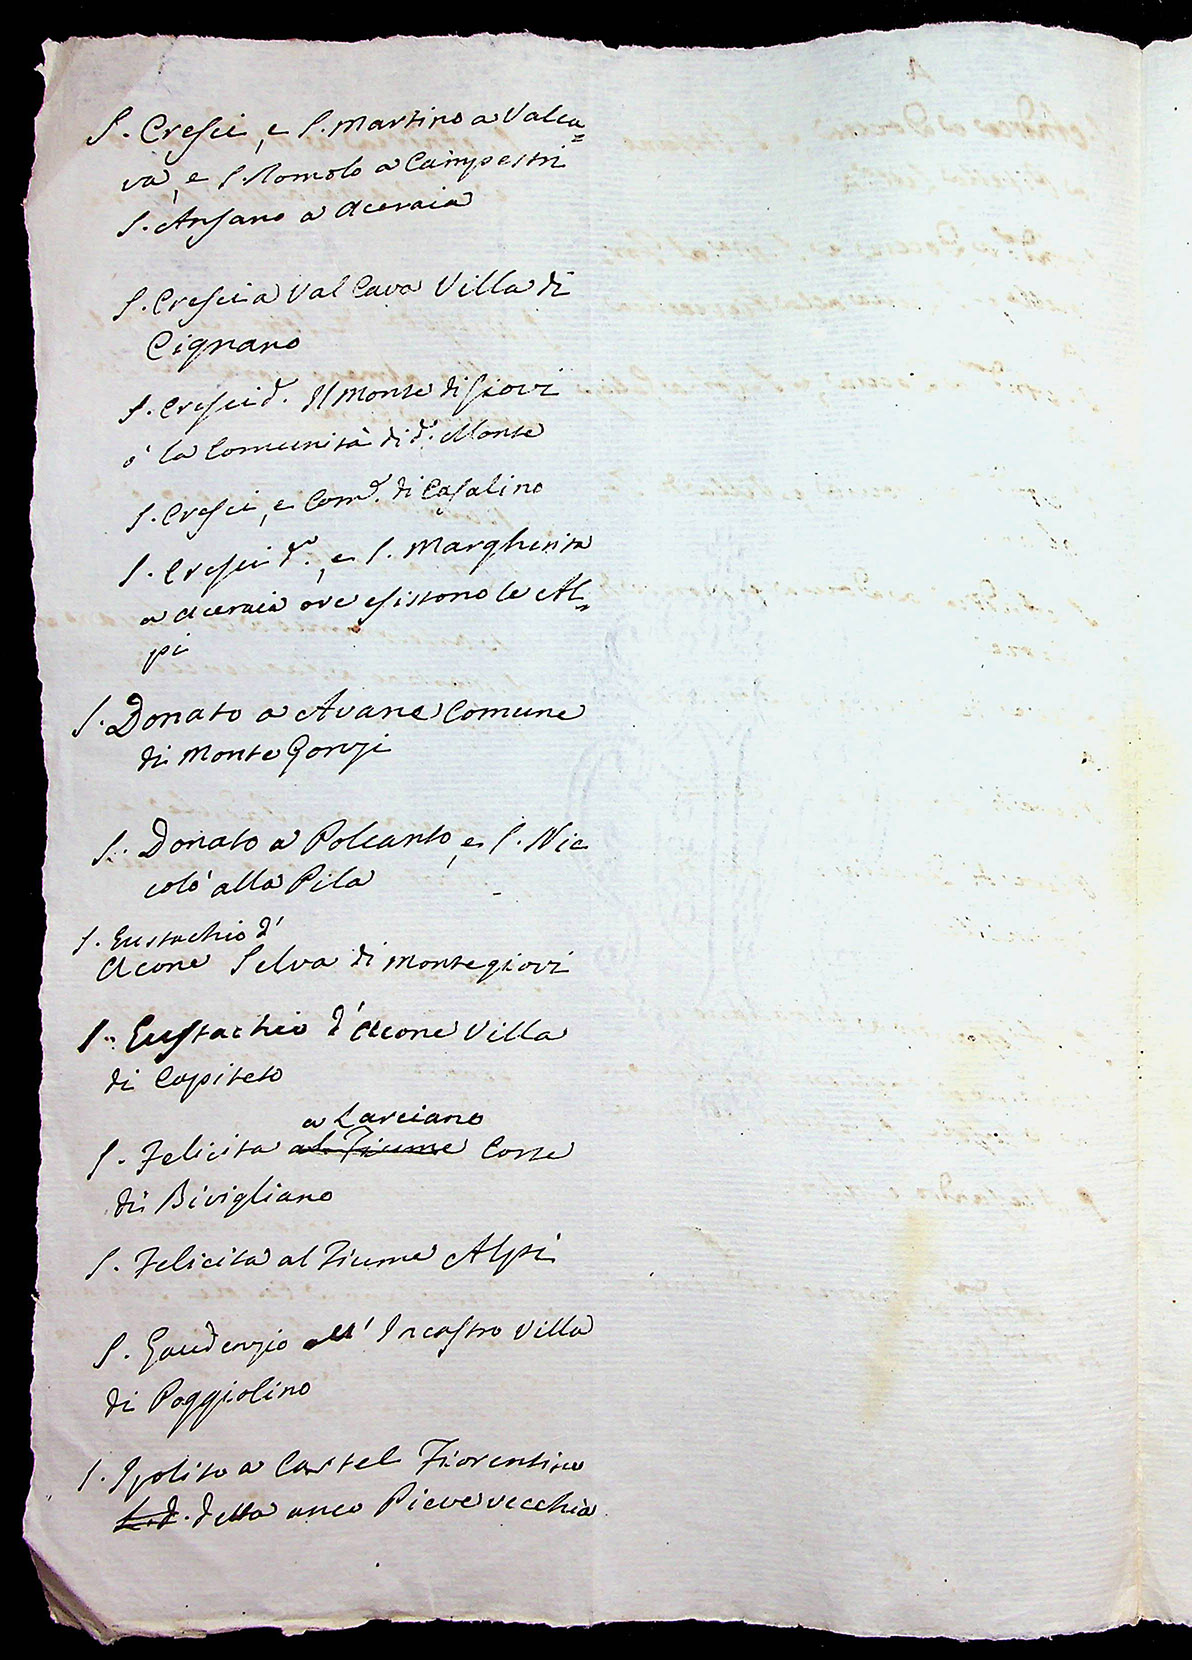 S. Cresci, e S. Martino a Valca=
va, e S. Romolo a Campestri
S. Ansano a Aceraia
S. Cresci a Val Cava Villa di
Cignano
S. Cresci d.º Il Monte di Giovi
o' la Comunità di d.º Monte
S. Cresci, e Com.e di Casalino
S. Cresci d.º, e S. Margherita
a Aceraia ove esistono le Al=
pi
S. Donato a Avane Comune
di Monte Gonzi
S. Donato a Polcanto, e S. Nic
colò alla Pila
S. Eustachio d'
Acone Selva di Montegiovi
S. Eustachio d'Acone Villa
di Capiteto
a Larciano
S. Felicita al Fiume Corte
di Bivigliano
S. Felicita al Fiume Alpi
S. Gaudenzio all' Incastro Villa
di Poggiolino
S. Ipolito a Castel Fiorentino
detta anco Pieve vecchia